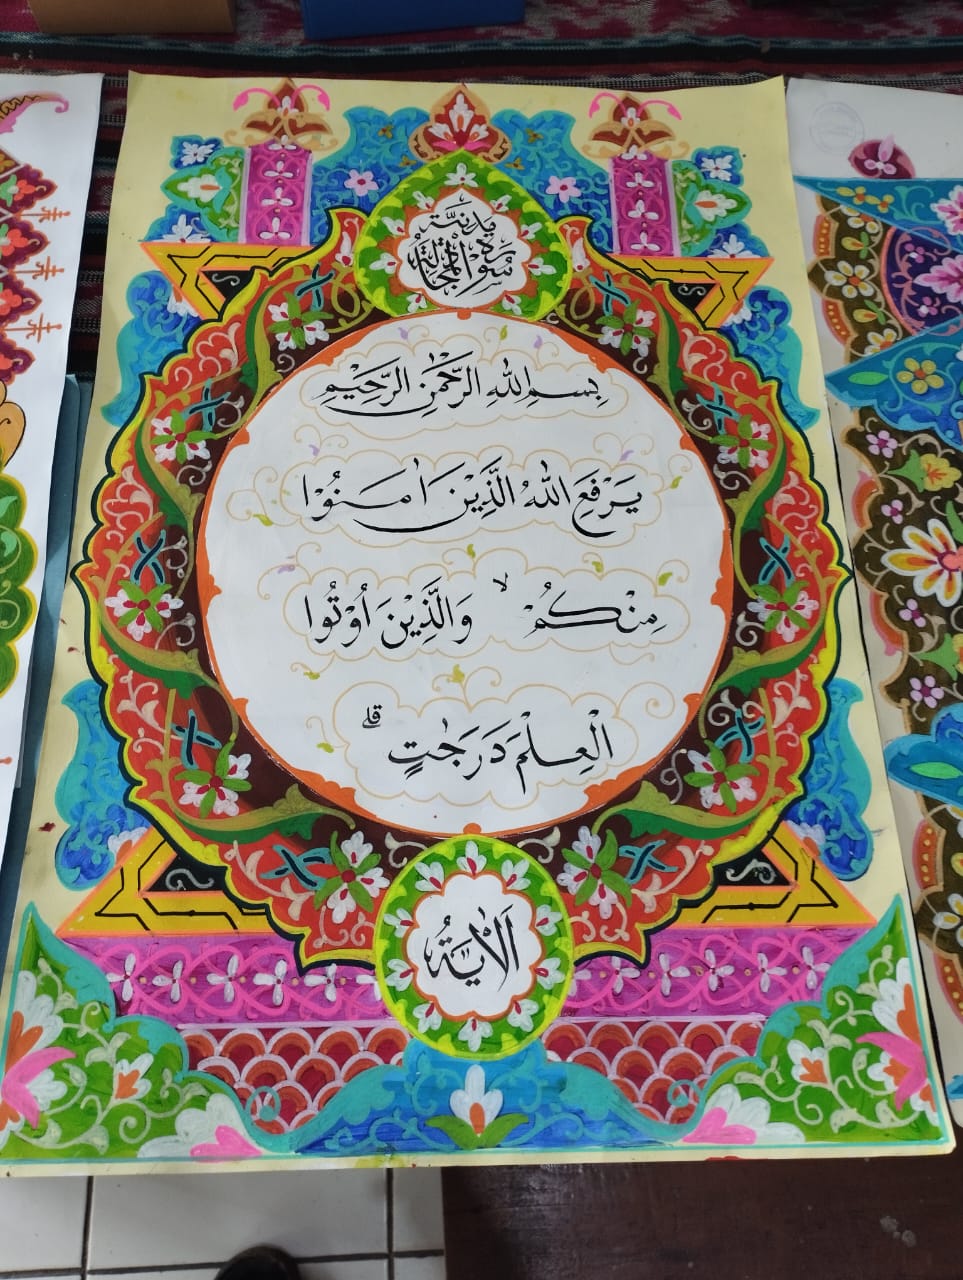 سورة المجادلة
مدنية
بِسْمِ اللهِ الرَّحْمٰنِ الرَّحِيْمِ
يَرْفَعِ اللهُ الَّذِيْنَ اٰمَنُوْا
مِنْكُمْ ۙ وَالَّذِيْنَ اُوْتُوا
الْعِلْمَ دَرَجٰتٍ ۗ
اَلْاٰيَةُ